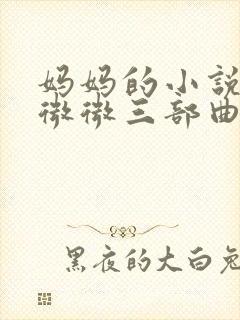 妈妈的小説
微微三部曲
黑夜的大白兔